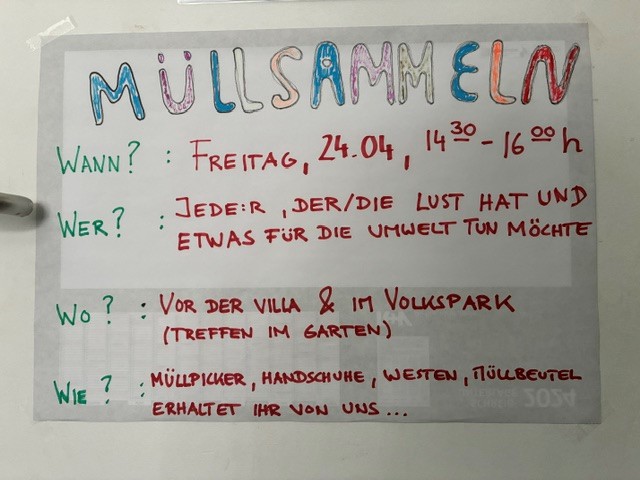 MÜLLSAMMELN
WANN? : FREITAG, 24.04, 14 30 - 16 00 h
WER? : JEDE:R, DER/DIE LUST HAT UND
ETWAS FÜR DIE UMWELT TUN MÖCHTE
WO? : VOR DER VILLA & IM VOLKSPARK
(TREFFEN IM GARTEN)
WIE? : MÜLLPICKER, HANDSCHUHE, WESTEN, MÜLLBEUTEL
ERHALTET IHR VON UNS...
2024